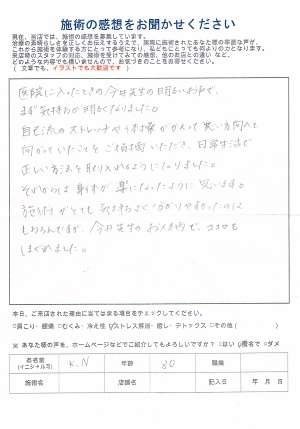 施術の感想をお聞かせください
現在、当店では、施術の感想を募集しています。
治療の素晴らしさを正しくお伝えするうえで、実際に施術されたあなた様の率直な声が、
これから施術を体験する方にとって参考になり、私どもにとっても何よりの力となります。
来店時のスタッフの対応、施術を受けてみての感想、他のお店との違い など、
どのような内容でも構いませんので、お気づきのことをお寄せください。
( 文章でも、イラストでも大歓迎です )
医院に入ったときの今井先生の明るいお声で、
まず気持ちが明るくなりました。
自己流のストレッチや体操がかえって悪い方向へと
向かっていたことをご指摘いただき、日常生活で
正しい方法を取り入れるようになりました。
それからは身体が楽になったように思います。
施術がとても気持ちよく分かりやすかったのは
もちろんですが、今井先生のお人柄で、ココロも
ほぐれました。
本日、ご来店された理由に当てはまる項目をチェックしてください。
□肩こり・腰痛 □むくみ・冷え性 ☑ストレス解消・癒し・デトックス □その他( )
※ あなた様の声を、ホームページなどでご紹介してもよろしいですか？ □はい ☑匿名で □ダメ
お名前 K.N 年齢 30 職業
(イニシャル可)
施術名 店舗名 記入日 年 月 日